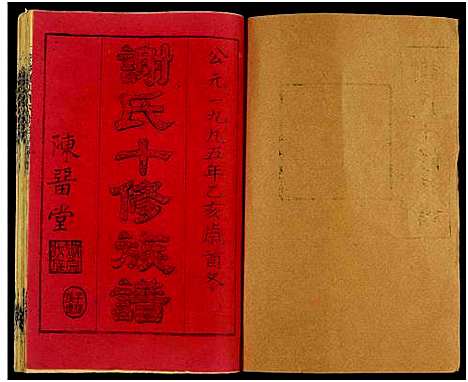 公元一九九五年乙亥歲酉月
謝氏十修族譜
陳留堂